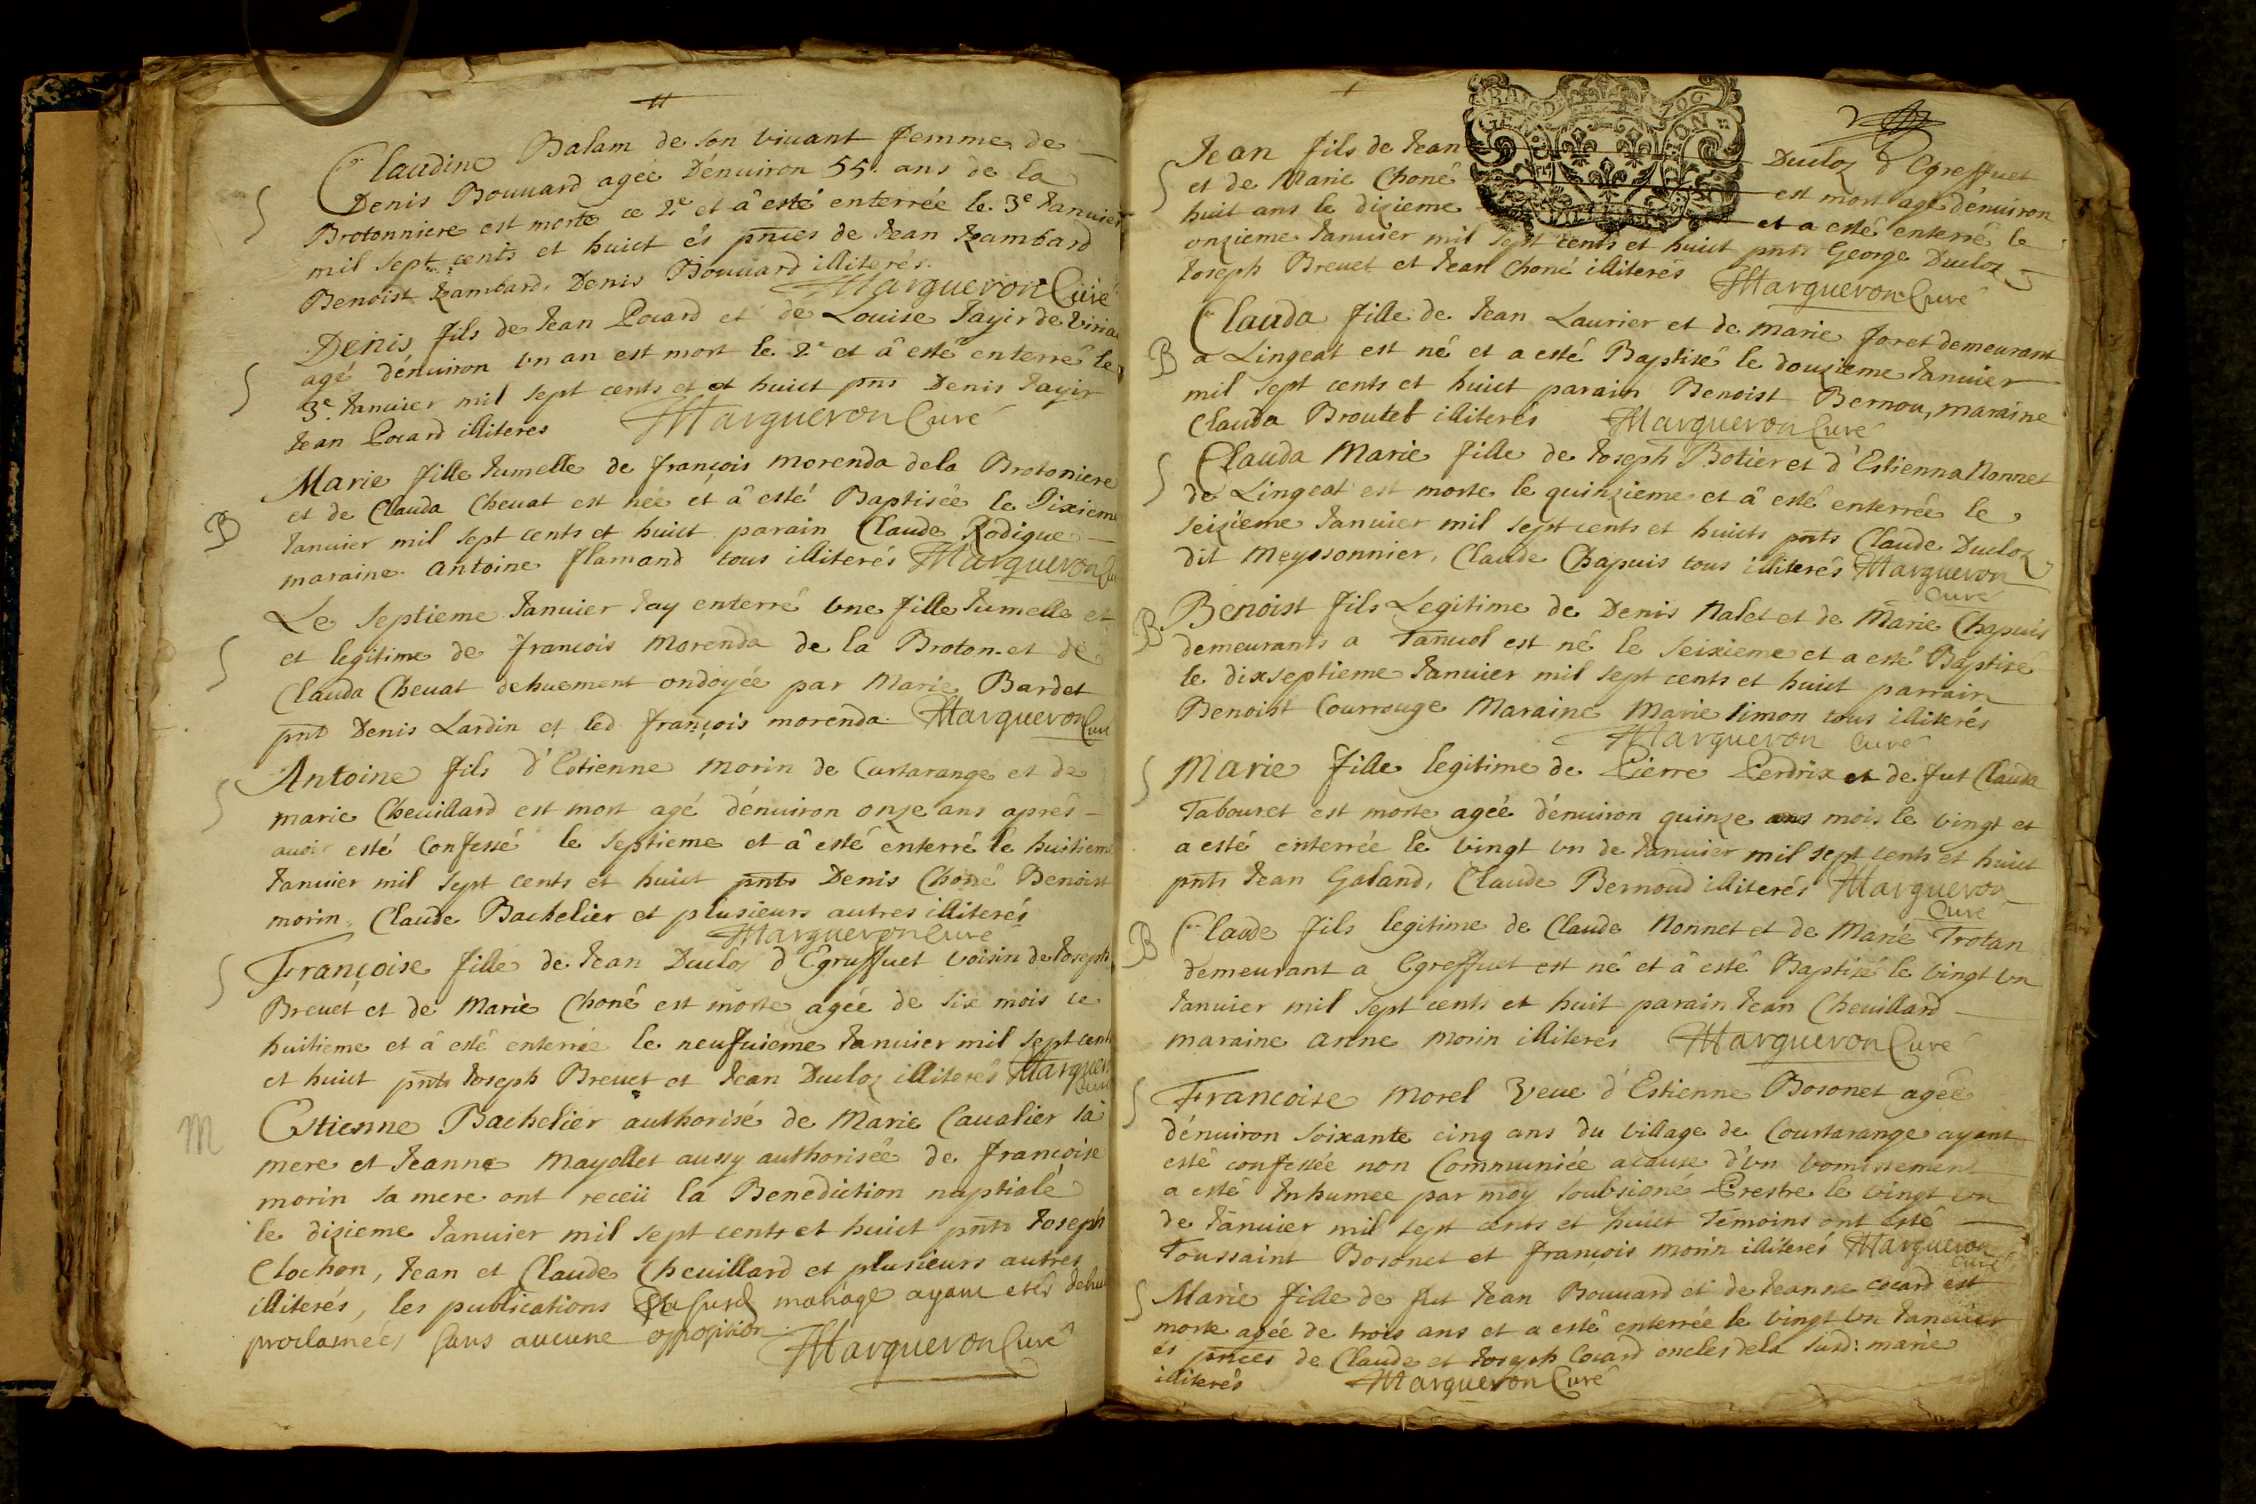 Claudine Balam de son vivant femme de
Denis Bouvard agée d'énuiron 55. ans de la
Brotonniere est morte ce 2e et â esté enterrée le 3e Januier
mil sept cents et huict és pñces de Jean Jambard
Benoist Jambard, Denis Bouuard illiterés.
Margueron Curé
Denis fils de Jean Pocard et de Louise Jayir de Viria
agé d'énuiron vn an est mort le 2e et â esté enterré le
3e Januier mil sept cents et et huict pnts Denis Jayir
Jean Pocard illiteres Margueron Curé
Marie fille Jumelle de françois morenda dela Brotoniere
B et de Clauda Cheuat est née et â esté Baptisée le Sixieme
Januier mil sept cents et huict parain Claude Rodigue
maraine antoine flamand tous illiterés Margueron Cu
Le septieme Januier Jay enterré vne fille Jumelle et
et legitime de françois Morenda de la Broton. et de
Clauda Cheuat dehuement ondoyée par Marie Bardet
pnt Denis Lardin et led. françois morenda. Margueron Cure
Antoine fils d'Estienne Morin de Curtarange et de
marie Cheuillard est mort agé d'énuiron onze ans aprés
auoir esté Confessé le septieme et â esté enterré le huitieme
Januier mil sept cents et huict pnts Denis Choné Benoist
morin, Claude Bachelier et plusieurs autres illiterés
Margueron Curé
Françoise fille de Jean Ducloz d'Egruffuet voisin de Joseph
Breuet et de Marie Choné est morte agée de six mois ce
huitieme et â esté enterrée le neufuieme Januier mil sept cents
et huict pnts Joseph Breuet et Jean Ducloz illiterés Margueron
Curé
M Estienne Bachelier authorisé de Marie Caualier sa
mere et Jeanne Mayollet aussy authorisée de françoise
morin sa mere ont receü la Benediction nuptiale
le dizieme Januier mil sept cents et huict pnts Joseph
Clochon, Jean et Claude Cheuillard et plusieurs autres
illiterés, les publications mariage ayant etés dehu
proclamées sans aucune opposition.
Margueron Curé
Jean fils de Jean Ducloz d'Egreffuet
et de Marie Choné est mort agé d'énuiron
huit ans le dizieme et a esté enterré le
onzieme Januier mil sept cents et huict pnts George Ducloz
Joseph Breuet et Jean Choné illiterés Margueron Curé
Clauda fille de Jean Laurier et de marie foret demeurant
B a Lingeat est né et a esté Baptisé le douzieme Januier
mil sept cents et huict parain Benoist Bernou, maraine
Clauda Broutet illiterés Margueron Curé
Clauda Marie fille de Joseph Botier et d'Estienna Nonnet
de Lingeat est morte le quinzieme et â esté enterrée le
seizieme Januier mil sept cents et huicts pnts Claude Ducloz
dit Meyssonnier, Claude Chapuis tous illiterés Margueron
Curé
B Benoist fils Legitime de Denis Nalet et de Marie Chapuis
demeurants a Tanuol est né le seixieme et a esté Baptisé
le dixseptieme Januier mil sept cents et huict parrain
Benoist Courrouge Maraine Marie Simon tous illiterés
Margueron Curé
Marie fille legitime de Pierre Perdrix et de fut Clauda
Tabouret est morte agée d'énuiron quinze mois le vingt et
a esté enterrée le vingt vn de Januier mil sept cents et huict
pnts Jean Galand, Claude Bernoud illiterés Margueron
Curé
B Claude fils legitime de Claude Nonnet et de Marie Trotan
demeurant a Egreffuet est né et â esté Baptisé le vingt vn
Januier mil sept cents et huit parain Jean Cheuillard
maraine anne Morin illiteres Margueron Curé
Francoise Morel Veue d'Estienne Bosonet agée
d'énuiron soixante cinq ans du village de Courtarange ayant
esté confessée non Communiée acause d'vn vomissement
a esté Inhumee par moy soubsigné Prestre le vingt vn
de Januier mil sept cents et huict Témoins ont esté
Toussaint Bosonet et françois Morin illiterés Margueron
Curé
Marie fille de fut Jean Bouuard et de Jeanne cocard est
morte agée de trois ans et a esté enterrée le vingt vn Januier
és pñces de Claude et Joseph Cocard oncles dela susd: marie
illiterés Margueron Curé